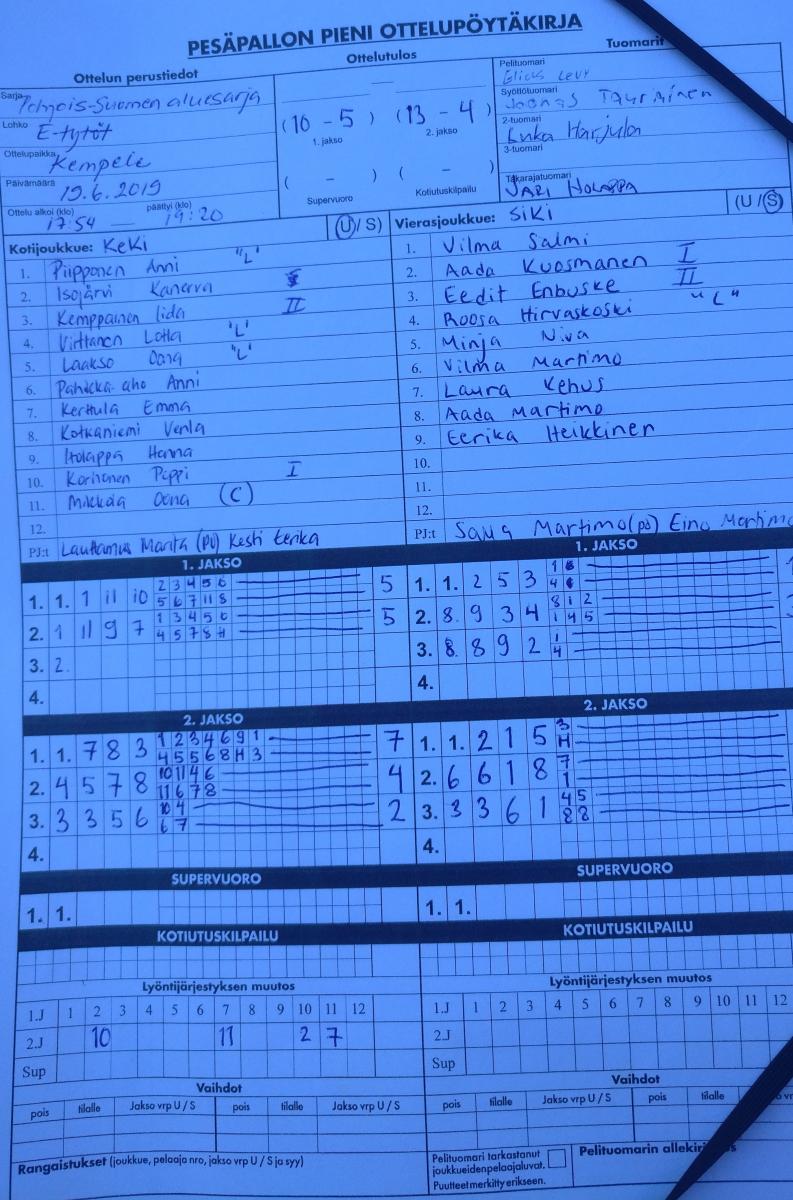 PESÄPALLON PIENI OTTELUPÖYTÄKIRJA
Ottelun perustiedot
Ottelutulos
Tuomarit
Sarja Pohjois-Suomen aluesarja
Lohko E-tytöt
Ottelupaikka Kempele
Päivämäärä 19.6.2019
Ottelu alkoi (klo) 17:54 päättyi (klo) 19:20
(10 - 5) (13 - 4)
1. jakso 2. jakso
( - ) ( - )
Supervuoro Kotiutuskilpailu
Pelituomari
Syöttötuomari Joonas Tauriainen
2-tuomari Luka Harjula
3-tuomari
Takarajatuomari Jari Holappa
Kotijoukkue: KeKi (U/S)
1. Piipponen Anni "L"
2. Isojärvi Kanerva
3. Kemppainen Iida II
4. Virttanen Lotta "L"
5. Laakso Oona "L"
6. Anni
7. Kerttula Emma
8. Kotkaniemi Venla
9. Holappa Hanna
10. Korhonen Pippi I
11. Mikkola Oona (C)
12.
PJ:t Lauttamus Marita (PJ) Kesti Eerika
Vierasjoukkue: SiKi (U/S)
1. Vilma Salmi
2. Aada Kuosmanen I
3. Eedit Enbuske II
4. Roosa Hirvaskoski "L"
5. Minja Niva
6. Vilma Martimo
7. Laura Kehus
8. Aada Martimo
9. Eerika Heikkinen
10.
11.
12.
PJ:t Saija Martimo (pj) Eino Martimo
1. JAKSO
1. 1. 1 11 10 2 3 4 5 6 5
5 6 7 11 8
2. 1 11 9 7 1 3 4 5 6 5
4 5 7 8 H
3. 2.
4.
1. JAKSO
1. 1. 2 5 3
2. 8. 9 3 4 8 1 2
1 4 5
3. 8. 8 9 2 1
4
4.
2. JAKSO
1. 1. 7 8 3 1 2 3 4 6 9 1 7
4 5 5 6 8 H 3
2. 4 5 7 8 10 11 4 6 4
11 6 7 8
3. 3 3 5 6 10 4 2
6 7
4.
2. JAKSO
1. 1. 2 1 5 3
H
2. 6 6 1 8 7
1
3. 3 3 6 1 4 5
8 8
4.
SUPERVUORO
1. 1.
SUPERVUORO
1. 1.
KOTIUTUSKILPAILU
KOTIUTUSKILPAILU
Lyöntijärjestyksen muutos
1.J 1 2 3 4 5 6 7 8 9 10 11 12
2.J 10 11 2 7
Sup
Lyöntijärjestyksen muutos
1.J 1 2 3 4 5 6 7 8 9 10 11 12
2.J
Sup
Vaihdot
pois tilalle Jakso vrp U / S pois tilalle Jakso vrp U / S
Vaihdot
pois tilalle Jakso vrp U / S pois tilalle
Rangaistukset (joukkue, pelaaja nro, jakso vrp U / S ja syy)
Pelituomari tarkastanut
joukkueidenpelaajaluvat.
Puutteet merkitty erikseen.
Pelituomarin